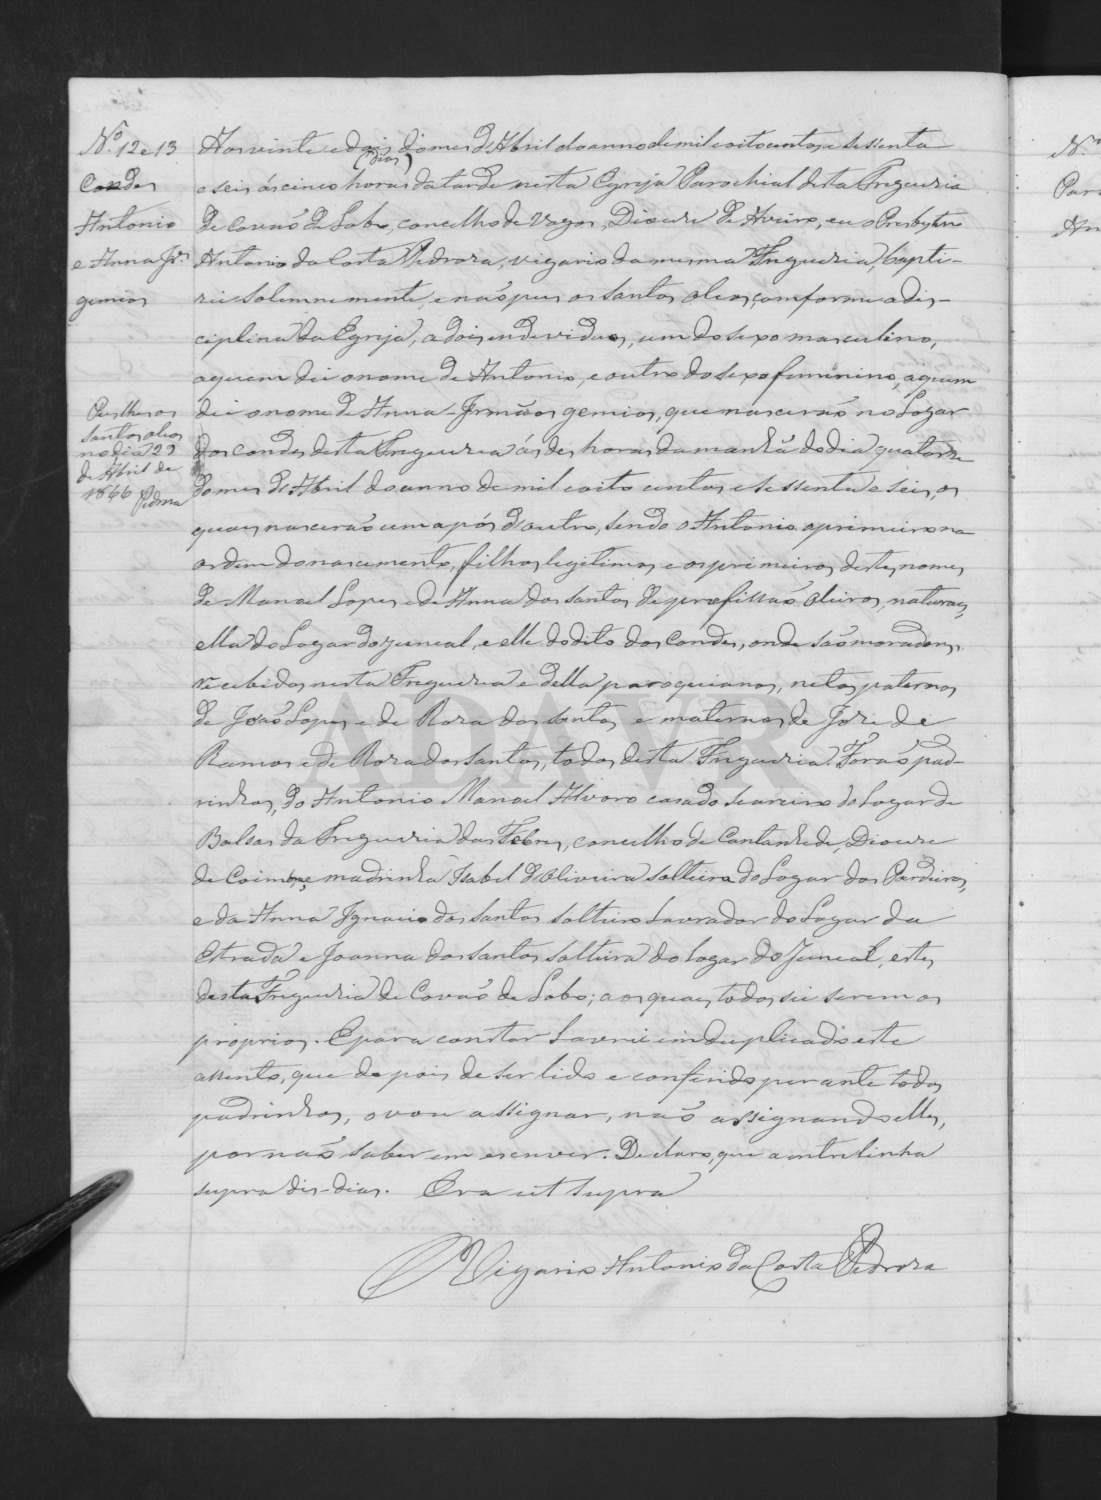 Nº 12 e 13
Condes
Antonio
e Anna Jr.
gemeos
Puslhes os
santos oleos
no dia 29
de Abril de
1866 Pedroza
Aos vinte e dois do mes d'Abril do anno de mil e oito centos e sessenta
(dias)
e seis ás cinco horas da tarde nesta Egreja Parochial desta Freguezia
de Covaõ de Lobo, concelho de Vagos, Diocese de Aveiro, eu o Presbytero
Antonio da Costa Pedroza, vigario da mesma Freguezia, bapti-
zei solemnemente, e naõ pus os santos oleos, comforme a dis-
ciplina da Egreja, a dois endeviduos, um do sexo masculino,
a quem dei o nome de Antonio, e outro do sexo feminino, a quem
dei o nome de Anna - Jrmãos gemios, que nasceraõ no Logar
dos Condes desta Freguezia ás des horas da manhã do dia quatorze
do mes d'Abril do anno de mil e oito centos e sessenta e seis, os
quaes nasceraõ um após d'outro, sendo o Antonio o primeiro na
ordem do nascimento, filhos legitimos e os primeiros destes nomes
de Manoel Lopes e de Anna dos Santos de profissaõ Oleiros, naturaes,
ella do Logar do Juncal, e elle do dito dos Condes, onde saõ moradores,
recebidos nesta Freguezia e della paroquianos, netos paternos
de Joaõ Lopes e de Roza dos Santos, e maternos de Joze de
Ramos e de Roza dos Santos, todos desta Freguezia. Foraõ pad-
rinhos, do Antonio Manoel Alvaro casado Seareiro do Logar de
Balsas da Freguezia das Febres, concelho de Cantanhede, Diocese
de Coimbra, e madrinha Isabel d'Oliveira solteira do Logar dos Pardieiros,
e da Anna Ignacio dos Santos solteiro Lavrador do Logar da
Etrada e Joanna dos Santos solteira do Logar do Juncal, estes
desta Freguezia de Covaõ de Lobo; aos quaes todos sei serem os
proprios. E para constar lavrei em duplicado este
assento, que depois de ser lido e conferido perante todos
padrinhos, o vou assignar, naõ assignando elles,
por naõ saberem escrever. Declaro, que a entrelinha
supra dis-dias. Era ut supra
O Vigario Antonio da Costa Pedroza
ADAVR